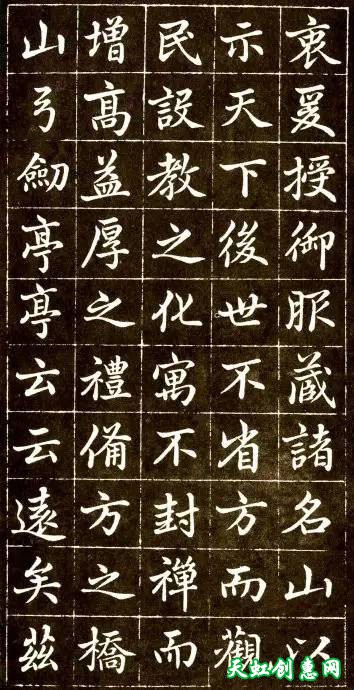 衷爰授御服藏諸名山以
示天下後世不省方而觀
民設教之化寓不封禪而
增高益厚之禮備方之橋
山弓劒亭亭云云遠矣茲
天虹创意网